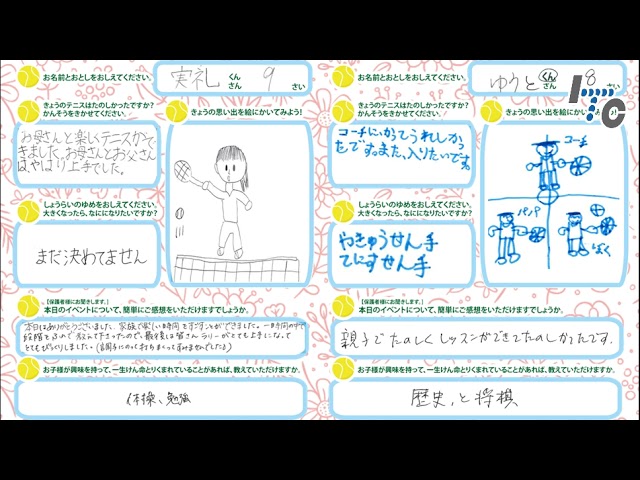 お名前とおとしをおしえてください。
実礼 くん さん 9 さい
きょうのテニスはたのしかったですか?
かんそうをきかせてください。
お母さんと楽しくテニスがで
きました。お母さんとお父さん
はやはり上手でした。
きょうの思い出を絵にかいてみよう!
しょうらいのゆめをおしえてください。
大きくなったら、なにになりたいですか?
まだ決めてません
【保護者様にお聞きします。】
本日のイベントについて、簡単にご感想をいただけますでしょうか。
本日はありがとうございました。家族で楽しい時間を
お子様が興味を持って、一生けん命とりくまれていることがあれば、教えていただけますか。
体操、勉強
お名前とおとしをおしえてください。
ゆうと くん さん 8 さい
ITC
きょうのテニスはたのしかったですか?
かんそうをきかせてください。
コーチにかてうれしかっ
たです。また、入りたいです。
きょうの思い出を絵にかいてみよう!
コーチ
パパ
ぼく
しょうらいのゆめをおしえてください。
大きくなったら、なにになりたいですか?
やきゅうせん手
てにすせん手
【保護者様にお聞きします。】
本日のイベントについて、簡単にご感想をいただけますでしょうか。
親子でたのしくレッスンができてたのしかったです。
お子様が興味を持って、一生けん命とりくまれていることがあれば、教えていただけますか。
歴史,と将棋